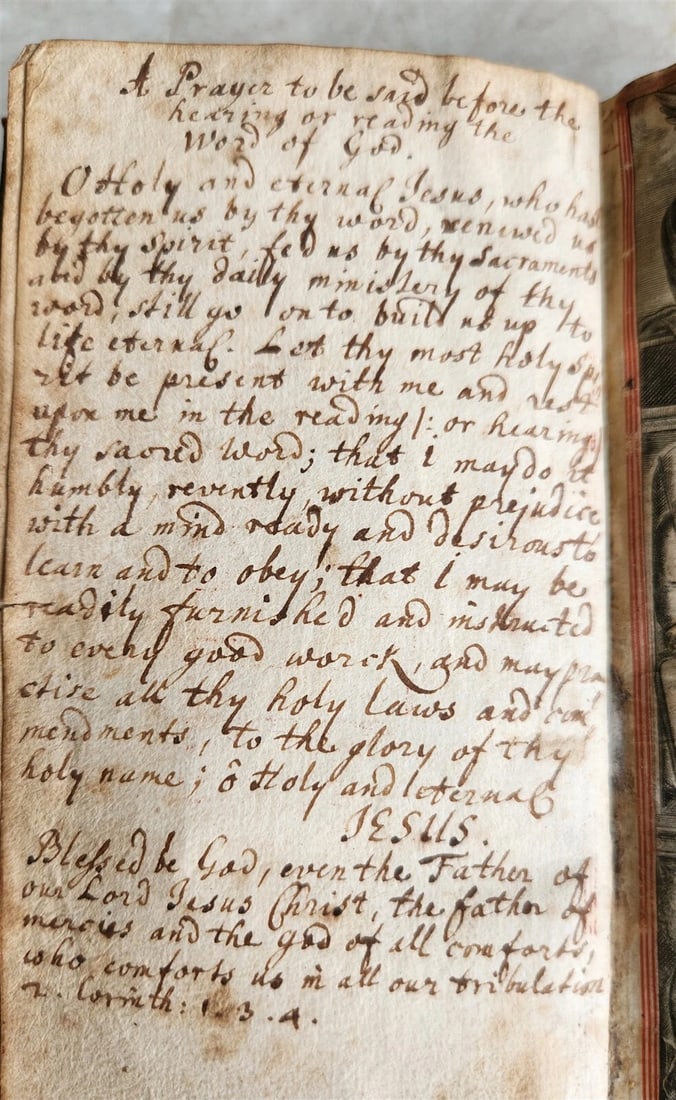 A Prayer to be said before the
hearing or reading the
Word of God.
O Holy and eternal Jesus, who has
begotten us by thy word, renewed us
by thy Spirit, fed us by thy Sacraments
and by thy daily ministery of thy
word, still go on to build us up to
life eternal. Let thy most holy Spi
rit be present with me and rest
upon me in the reading /: or hearing :/
thy sacred Word; that i may do it
humbly, revently, without prejudice
with a mind ready and desirous to
learn and to obey; that i may be
readily furnished and instructed
to every good worck, and may pra
ctise all thy holy laws and com
mendments, to the glory of thy
holy name; ô Holy and eternal
JESUS.
Blessed be God, even the Father of
our Lord Jesus Christ, the father of
mercies and the god of all comforts,
who comforts us in all our tribulation
2. Corinth: 1. 3. 4.